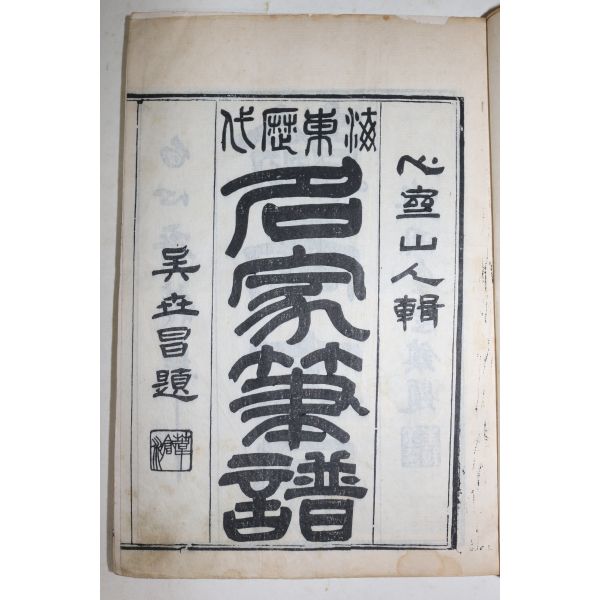 心齋山人輯
海東歷代
名家筆譜
吳世昌題
葦滄